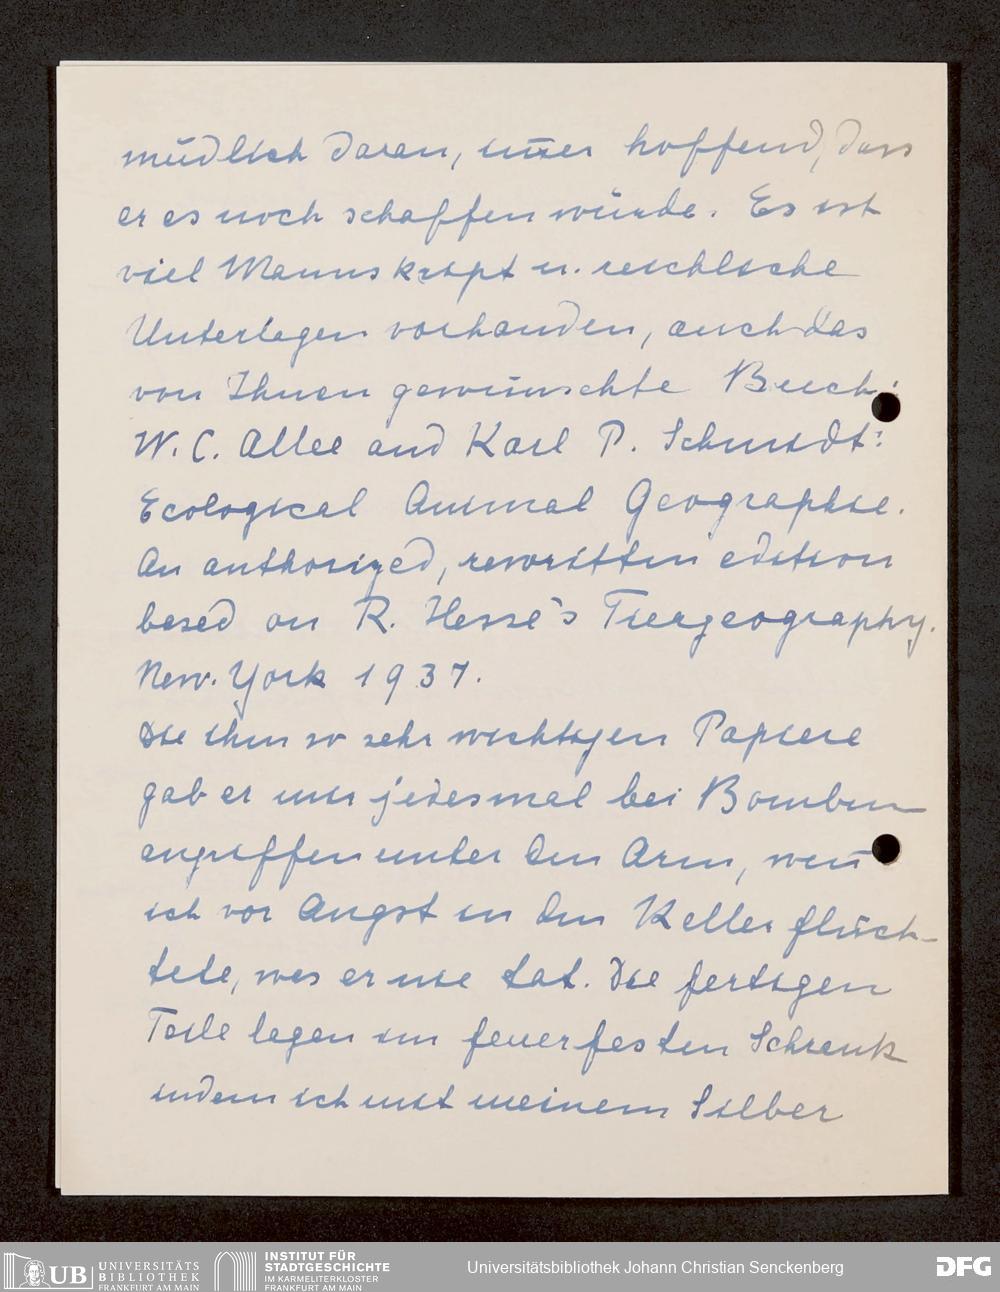 müdlich daran, im̅er hoffend, dass
er es noch schaffen würde. Es ist
viel Manuskript u. reichliche
Unterlagen vorhanden, auch das
von Ihnen gewünschte Buch:
W. C. Allee and Karl P. Schmidt:
Ecological Animal Geographie.
An authorized, rewritten edition
based on R. Hesse's Tiergeography.
New. York 1937.
Die ihm so sehr wichtigen Papiere
gab er mir jedesmal bei Bomben
angriffen unter den Arm, wen̅
ich vor Angst in den Keller flüch-
tete, was er nie tat. Die fertigen
Teile lagen im feuerfesten Schrank
indem ich mit meinem Silber
UB UNIVERSITÄTS
BIBLIOTHEK
FRANKFURT AM MAIN
INSTITUT FÜR
STADTGESCHICHTE
IM KARMELITERKLOSTER
FRANKFURT AM MAIN
Universitätsbibliothek Johann Christian Senckenberg
DFG